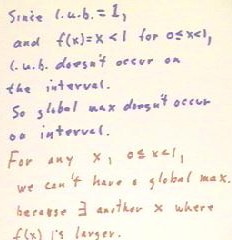 Since l.u.b. = 1,
and f(x)=x < 1 for 0≤x<1,
l.u.b. doesn't occur on
the interval.
So global max doesn't occur
on interval.
For any x, 0≤x<1,
we can't have a global max.
because ∃ another x where
f(x) is larger.